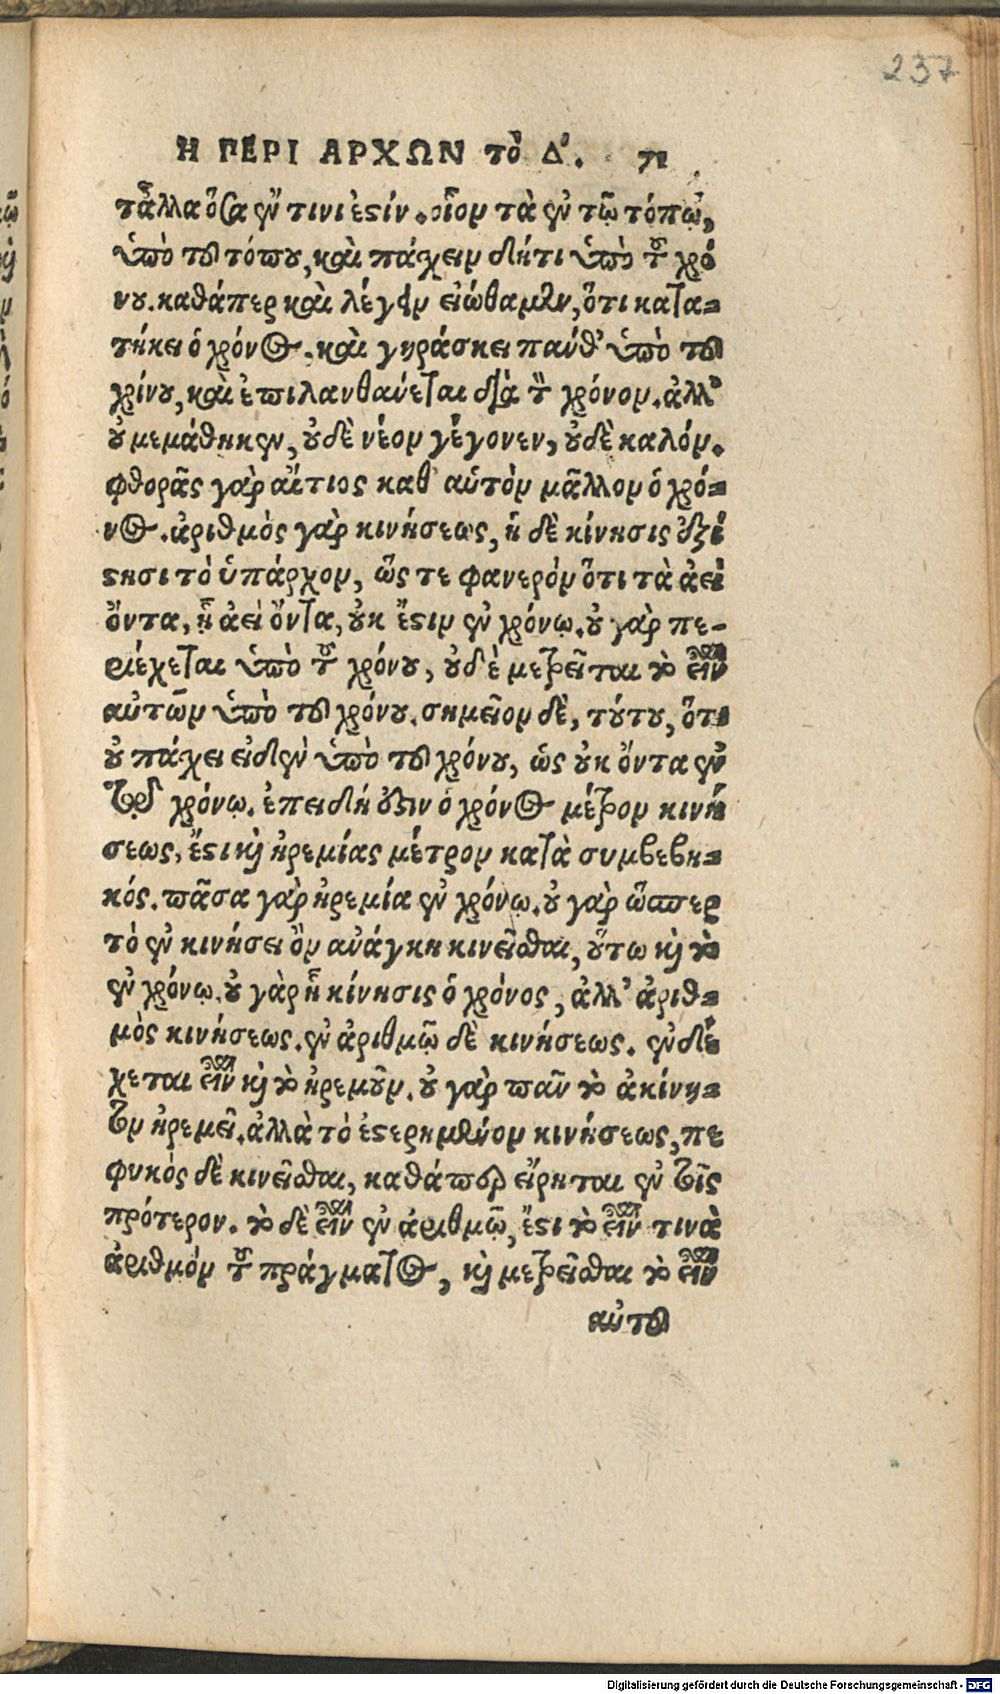 237
Η ΠΕΡΙ ΑΡΧΩΝ τὸ Δ΄. 71
τἆλλα ὅσα ἔν τινι ἐστίν. οἷον τὰ ἐν τῷ τόπῳ,
ὑπὸ τοῦ τόπου, καὶ πάχειν δήτι ὑπὸ τοῦ χρό
νου. καθάπερ καὶ λέγειν εἰώθαμεν, ὅτι κατα-
τήκει ὁ χρόνος. καὶ γηράσκει πάνθ’ ὑπὸ τοῦ
χρίνου, καὶ ἐπιλανθάνεται διὰ τὸν χρόνον. ἀλλ’
οὐ μεμάθηκεν, οὐδὲ νέον γέγονεν, οὐδὲ καλόν.
φθορᾶς γὰρ αἴτιος καθ’ αὑτὸν μᾶλλον ὁ χρό-
νος. ἀριθμὸς γὰρ κινήσεως, ἡ δὲ κίνησις ἐξί
στησι τὸ ὑπάρχον, ὥς τε φανερὸν ὅτι τὰ ἀεὶ
ὄντα, ᾗ ἀεὶ ὄντα, οὐκ ἔστιν ἐν χρόνῳ. οὐ γὰρ πε-
ριέχεται ὑπὸ τοῦ χρόνου, οὐδὲ μετρεῖται τὸ εἶναι
αὐτῶν ὑπὸ τοῦ χρόνου. σημεῖον δὲ, τούτου, ὅτι
οὐ πάχει οὐδὲν ὑπὸ τοῦ χρόνου, ὡς οὐκ ὄντα ἐν
τῷ χρόνῳ. ἐπειδή ἐστιν ὁ χρόνος μέτρον κινή
σεως, ἔστι καὶ ἠρεμίας μέτρον κατὰ συμβεβη-
κός. πᾶσα γὰρ ἠρεμία ἐν χρόνῳ. οὐ γὰρ ὥσπερ
τὸ ἐν κινήσει ὂν ἀνάγκη κινεῖσθαι, οὕτω καὶ τὸ
ἐν χρόνῳ. οὐ γὰρ ἦ κίνησις ὁ χρόνος, ἀλλ’ ἀριθ-
μὸς κινήσεως. ἐν ἀριθμῷ δὲ κινήσεως. ἐνδέ
χεται εἶναι καὶ τὸ ἠρεμοῦν. οὐ γὰρ πᾶν τὸ ἀκίνη-
τον ἠρεμεῖ. ἀλλὰ τὸ ἐστερημένον κινήσεως, πε
φυκὸς δὲ κινεῖσθαι, καθάπερ εἴρηται ἐν τοῖς
πρότερον. τὸ δὲ εἶναι ἐν ἀριθμῷ, ἔστι τὸ εἶναι τινὰ
ἀριθμὸν τοῦ πράγματος, καὶ μετρεῖσθαι τὸ εἶναι
αὐτοῦ
Digitalisierung gefördert durch die Deutsche Forschungsgemeinschaft - DFG